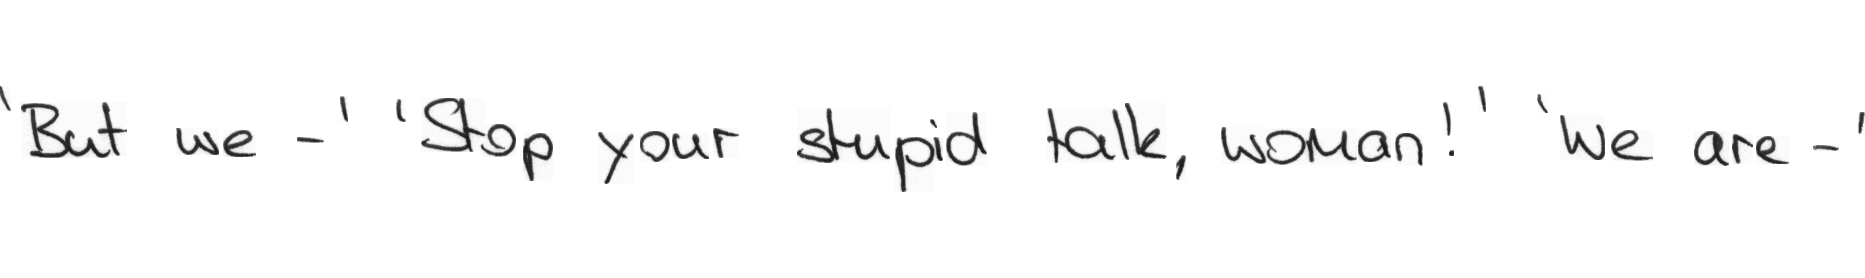 'But we -' 'Stop your stupid talk, woman!' 'We are -'